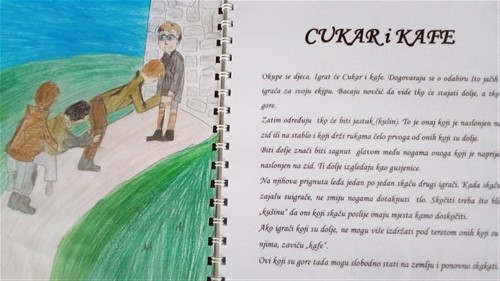 CUKAR i KAFE
Okupe se djeca. Igrat će Cukar i kafe. Dogovaraju se o odabiru što jačih
igrača za svoju ekipu. Bacaju novčić da vide tko će stajati dolje, a tko
gore.
Zatim određuju tko će biti jastuk (kušin). To je onaj koji je naslonjen na
zid ili na stablo i koji drži rukama čelo prvoga od onih koji su dolje.
Biti dolje znači biti sagnut glavom među nogama onoga koji je naprije
naslonjen na zid. Ti dolje izgledaju kao gusjenice.
Na njihova prignuta leđa jedan po jedan skaču drugi igrači. Kada skaču
zajašu suigrače, ne smiju nogama dotaknuti tlo. Skočiti treba što
„kušinu" da oni koji skaču poslije imaju mjesta kamo doskočiti.
Ako igrači koji su dolje, ne mogu više izdržati pod teretom onih koji su
njima, zaviču „kafe".
Ovi koji su gore tada mogu slobodno stati na zemlju i ponovno skakati.